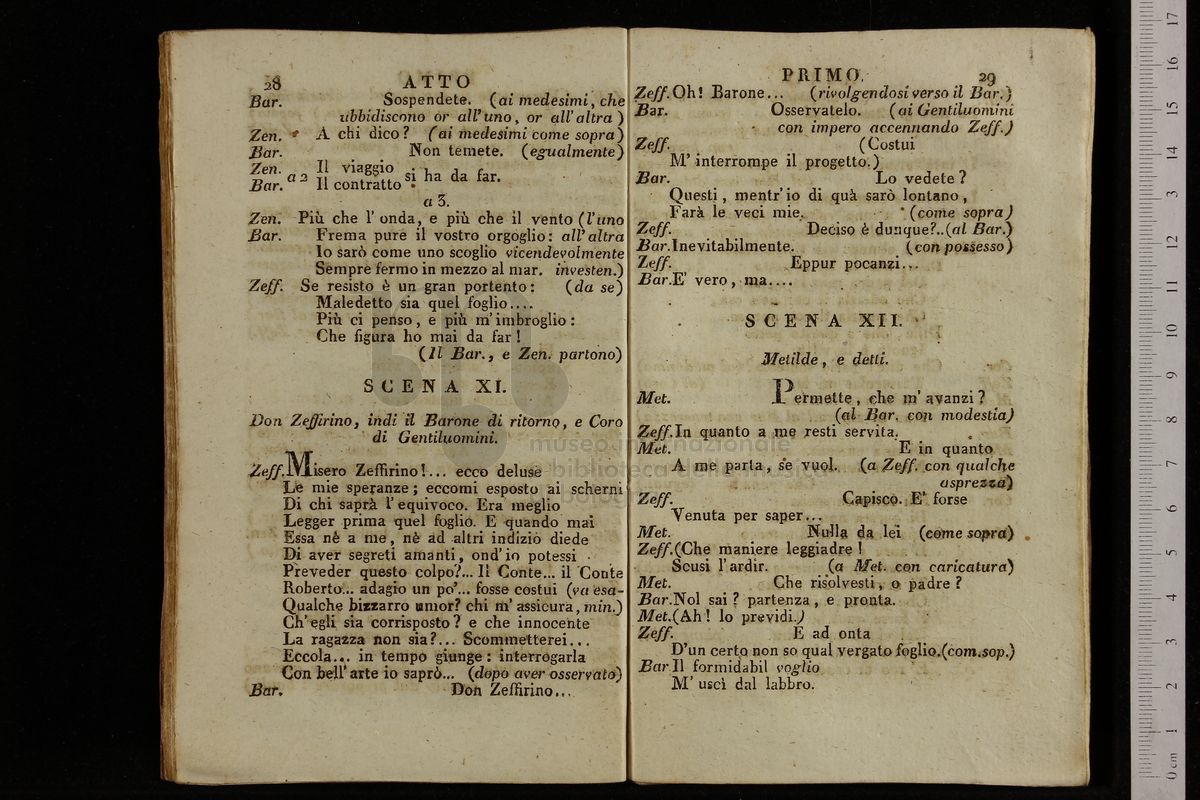 28 ATTO
Bar. Sospendete. (ai medesimi, che
ubbidiscono or all'uno, or all'altra)
Zen. A chi dico? (ai medesimi come sopra)
Bar. Non temete. (egualmente)
Zen. a 2 Il viaggio si ha da far.
Bar. Il contratto
a 3.
Zen. Più che l'onda, e più che il vento (l'uno
Bar. Frema pure il vostro orgoglio: all'altra
Io sarò come uno scoglio vicendevolmente
Sempre fermo in mezzo al mar. investen.)
Zeff. Se resisto è un gran portento: (da se)
Maledetto sia quel foglio....
Più ci penso, e più m'imbroglio:
Che figura ho mai da far!
(Il Bar., e Zen. partono)
SCENA XI.
Don Zeffirino, indi il Barone di ritorno, e Coro
di Gentiluomini.
Zeff. Misero Zeffirino!... ecco deluse
Le mie speranze; eccomi esposto ai scherni
Di chi saprà l'equivoco. Era meglio
Legger prima quel foglio. E quando mai
Essa nè a me, nè ad altri indizio diede
Di aver segreti amanti, ond'io potessi
Preveder questo colpo?... Il Conte... il Conte
Roberto... adagio un po'... fosse costui (va esa-
Qualche bizzarro umor? chi m'assicura, min.)
Ch'egli sia corrisposto? e che innocente
La ragazza non sia?... Scommetterei...
Eccola... in tempo giunge: interrogarla
Con bell'arte io saprò... (dopo aver osservato)
Bar. Don Zeffirino...
PRIMO. 29
Zeff. Oh! Barone... (rivolgendosi verso il Bar.)
Bar. Osservatelo. (ai Gentiluomini
con impero accennando Zeff.)
Zeff. (Costui
M'interrompe il progetto.)
Bar. Lo vedete?
Questi, mentr'io di quà sarò lontano,
Farà le veci mie. (come sopra)
Zeff. Deciso è dunque?..(al Bar.)
Bar. Inevitabilmente. (con possesso)
Zeff. Eppur pocanzi...
Bar. E' vero, ma....
SCENA XII.
Metilde, e detti.
Met. Permette, che m'avanzi?
(al Bar. con modestia)
Zeff. In quanto a me resti servita.
Met. E in quanto
A me parta, se vuol. (a Zeff. con qualche
asprezza)
Zeff. Capisco. E' forse
Venuta per saper...
Met. Nulla da lei (come sopra)
Zeff. (Che maniere leggiadre!
Scusi l'ardir. (a Met. con caricatura)
Met. Che risolvesti, o padre?
Bar. Nol sai? partenza, e pronta.
Met. (Ah! lo previdi.)
Zeff. E ad onta
D'un certo non so qual vergato foglio.(com.sop.)
Bar Il formidabil voglio
M'uscì dal labbro.
museo internazionale
biblioteca della musica
bologna
0 cm 1 2 3 4 5 6 7 8 9 10 11 12 13 14 15 16 17